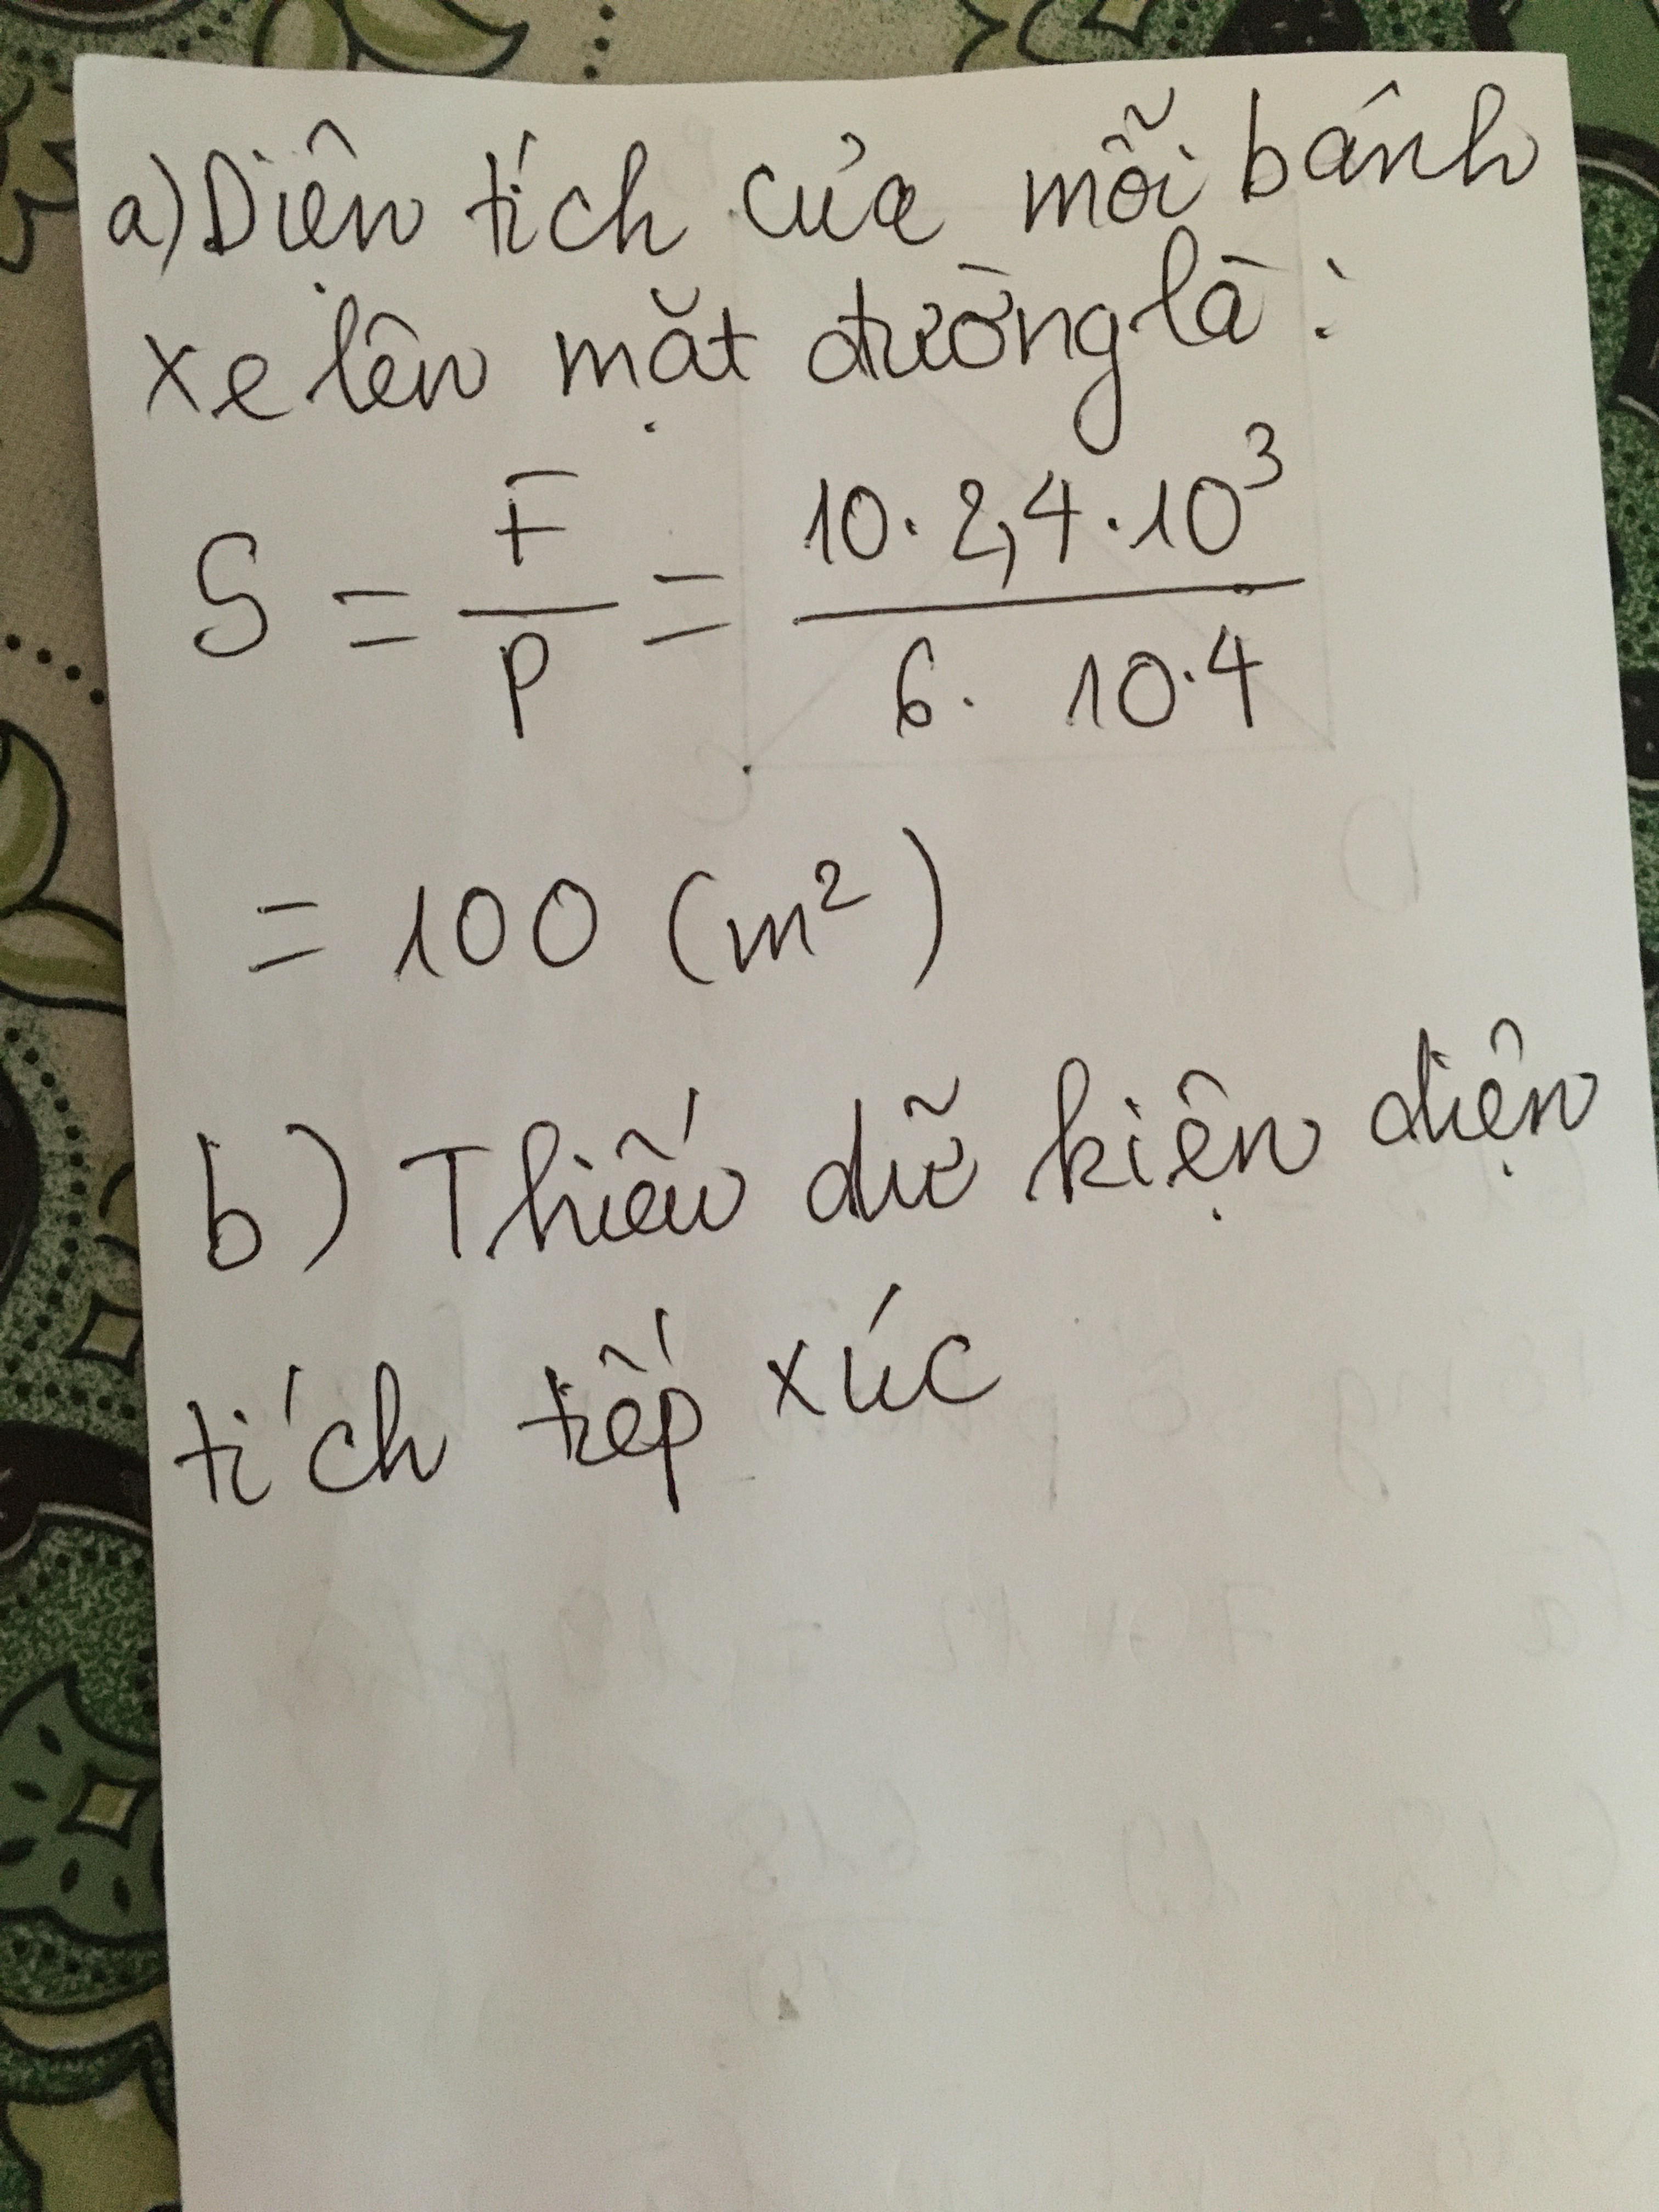 a) Diện tích của mỗi bánh
xe lên mặt đường là:
S = F/P = 10. 2,4 . 10³ / 6. 10.4
= 100 (m²)
b) Thiếu dữ kiện diện
tích tiếp xúc